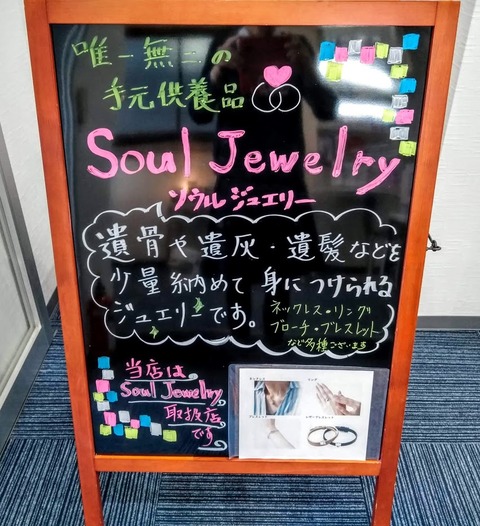 唯一無二の
手元供養品
Soul Jewelry
ソウルジュエリー
遺骨や遺灰・遺髪などを
少量納めて身につけられる
ジュエリーです。
ネックレス・リング
ブローチ・ブレスレット
など多種ございます
当店は
Soul Jewelry
取扱店
です